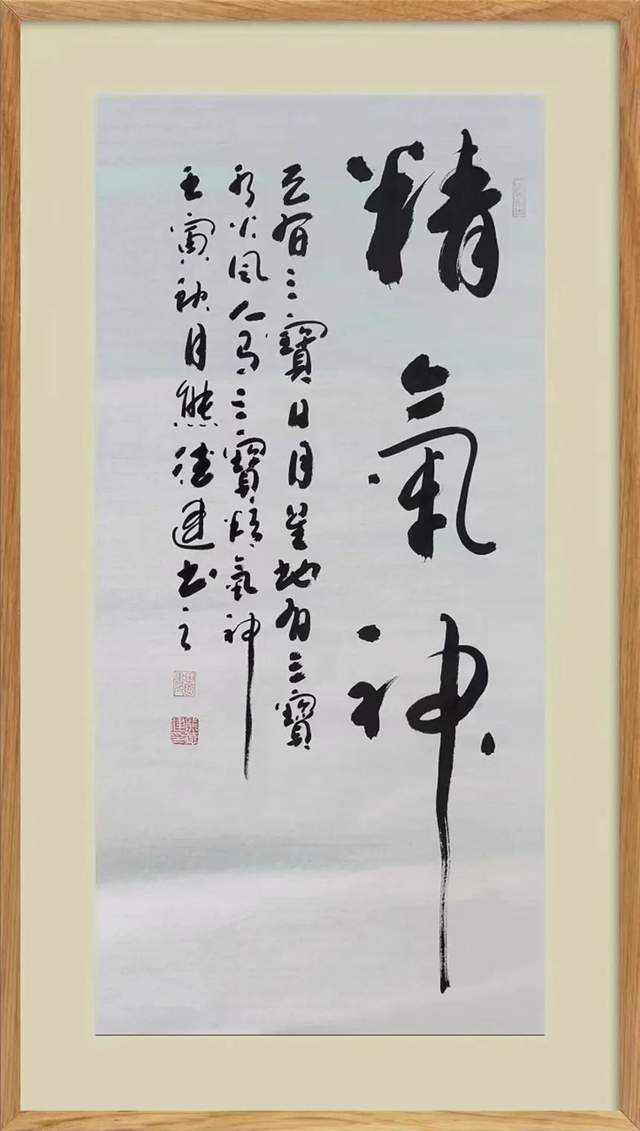 精氣神
天有三寶日月星地有三寶
水火風人有三寶精氣神
壬寅秋月熊德建书之